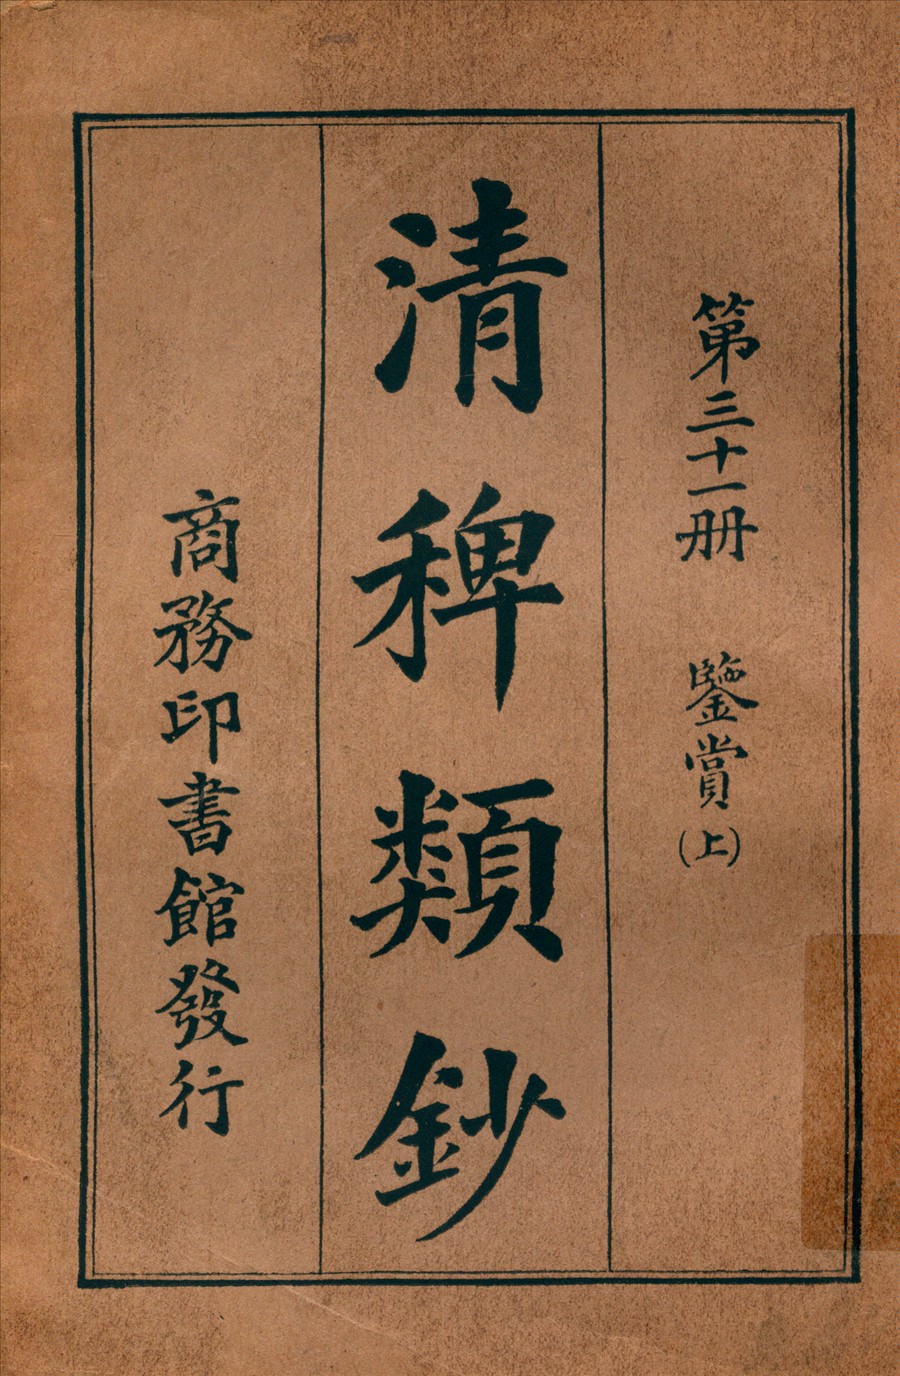 第三十一册　鑒賞(上)
清稗類鈔
商務印書館發行